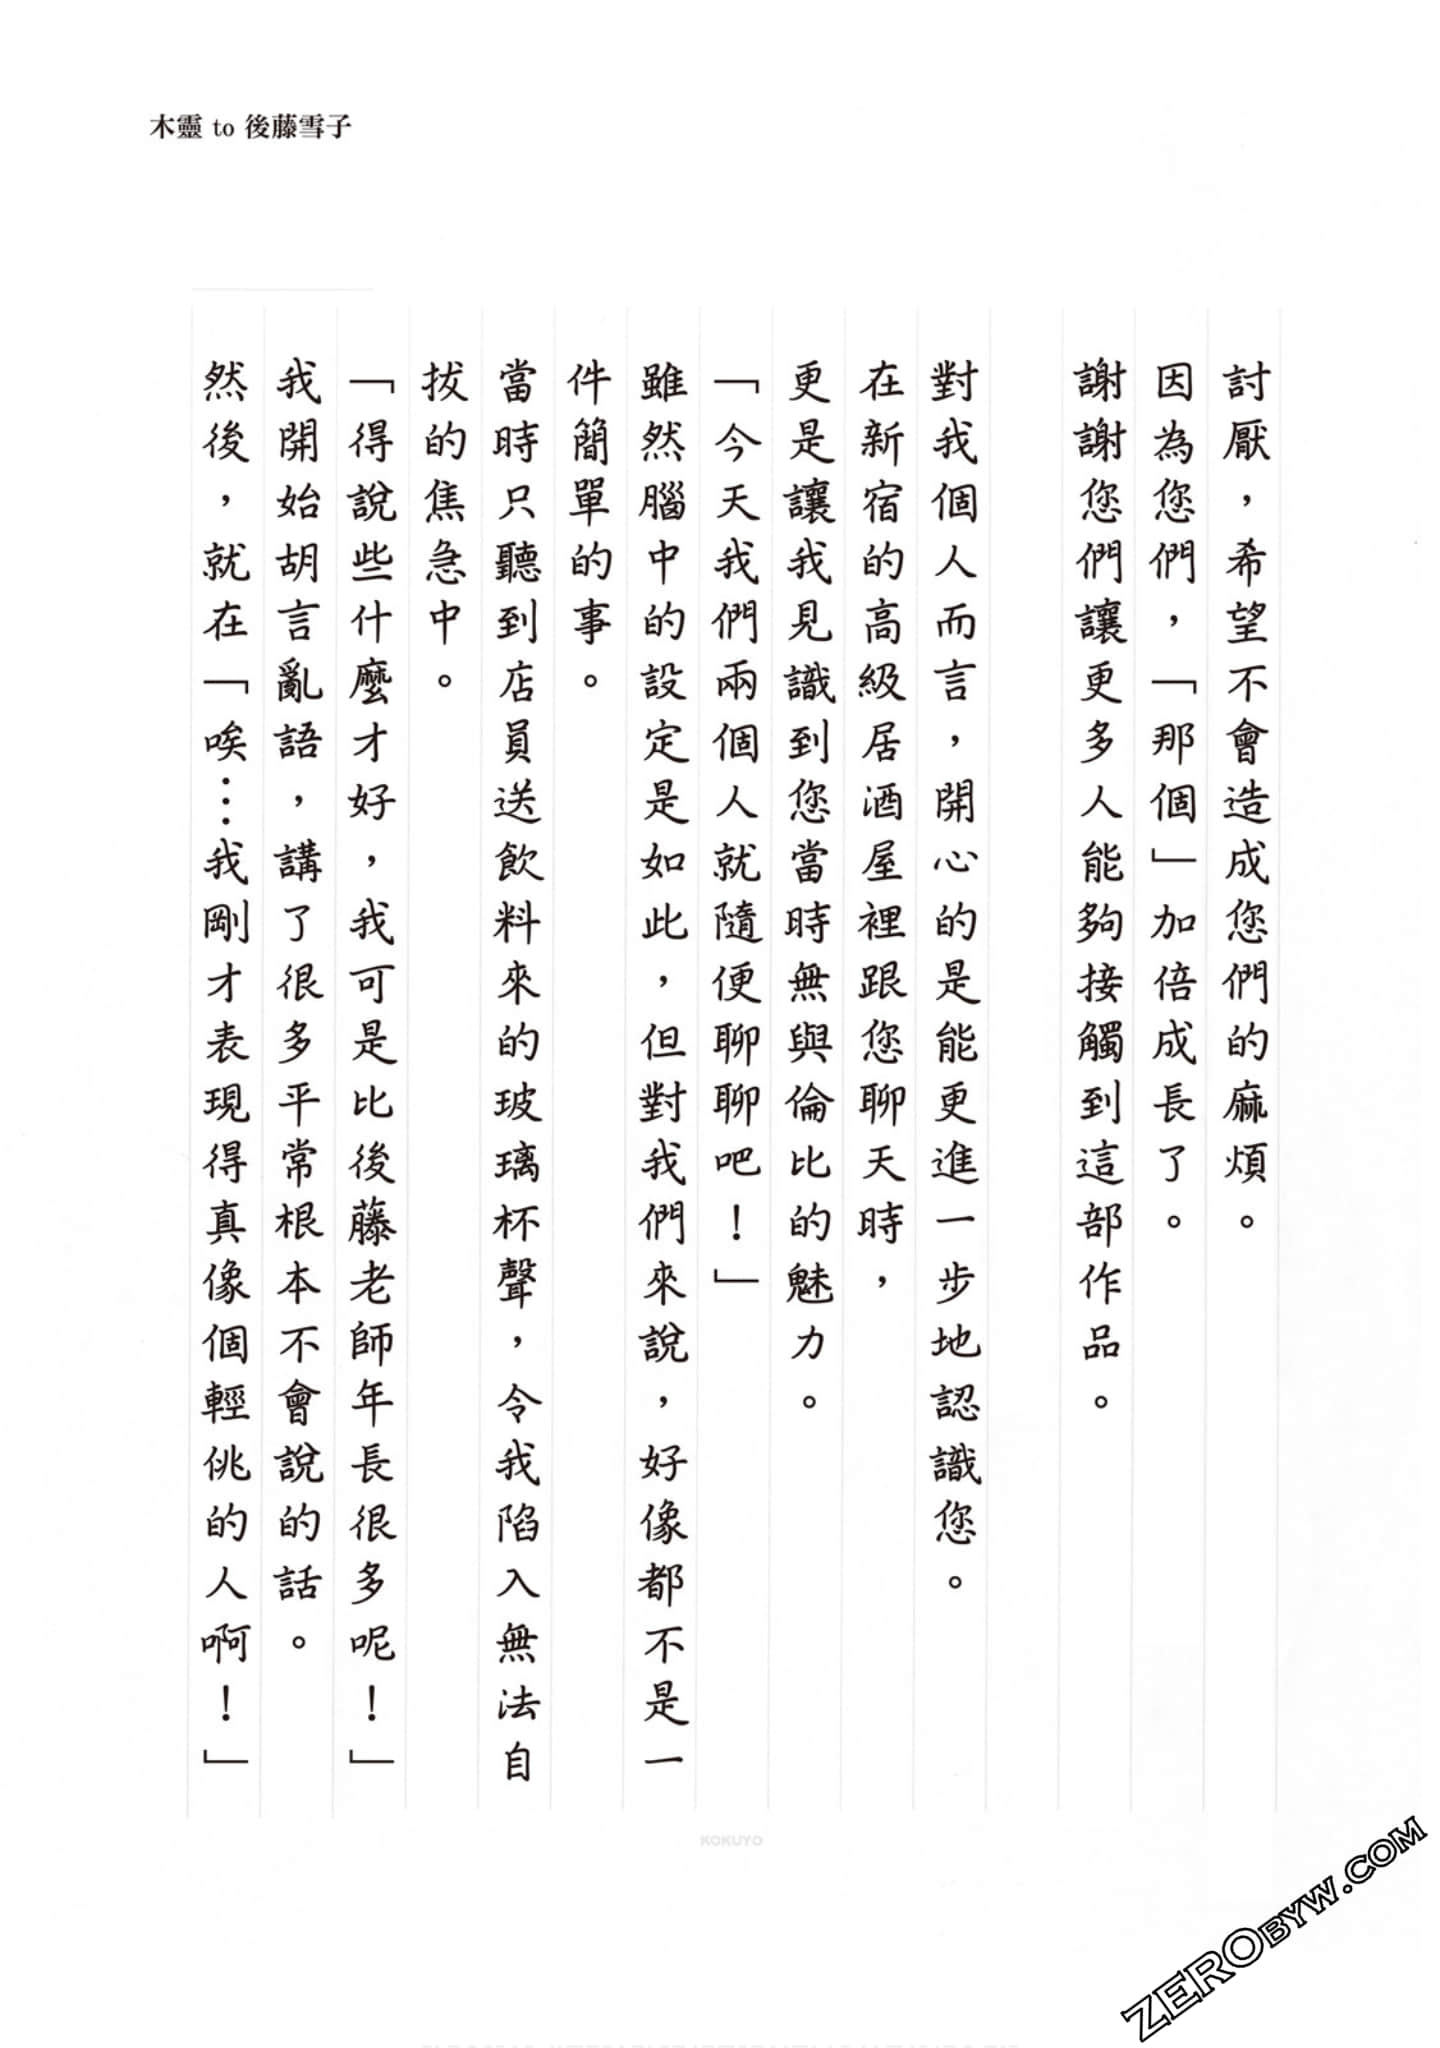 木靈 to 後藤雪子
討厭，希望不會造成您們的麻煩。
因為您們，「那個」加倍成長了。
謝謝您們讓更多人能夠接觸到這部作品。
對我個人而言，開心的是能更進一步地認識您。
在新宿的高級居酒屋裡跟您聊天時，
更是讓我見識到您當時無與倫比的魅力。
「今天我們兩個人就隨便聊聊吧！」
雖然腦中的設定是如此，但對我們來說，好像都不是一
件簡單的事。
當時只聽到店員送飲料來的玻璃杯聲，令我陷入無法自
拔的焦急中。
「得說些什麼才好，我可是比後藤老師年長很多呢！」
我開始胡言亂語，講了很多平常根本不會說的話。
然後，就在「唉…我剛才表現得真像個輕佻的人啊！」
KOKUYO
ZEROBYW.COM